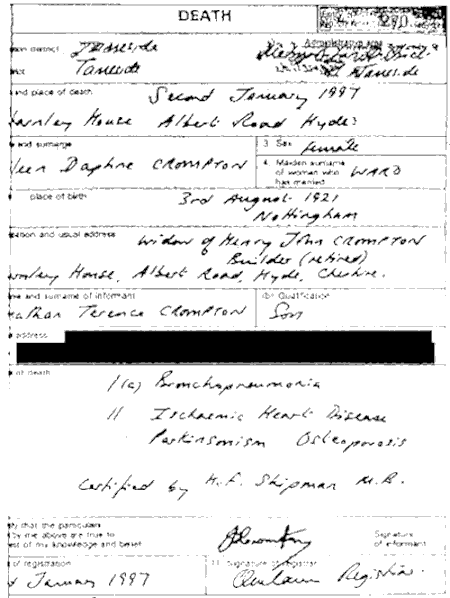 DEATH
district
Tameside
Tameside
Tameside
and place of death
Second January 1997
House Albert Road Hyde
and surname
3 Sex
female
Daphne CROMPTON
4. Maiden surname
of woman who
has married
WARD
place of birth
3rd August 1921
Nottingham
and usual address
Widow of Henry John CROMPTON
Builder (retired)
House, Albert Road, Hyde, Cheshire.
and surname of informant
(b) Qualification
Terence CROMPTON
Son
address
of death
I (a) Bronchopneumonia
II Ischaemic Heart Disease
Parkinsonism Osteoporosis
Certified by H.F. Shipman M.B.
that the particulars
by me above are true to
best of my knowledge and belief
Signature
of informant
of registration
11 Signature of registrar
January 1997
Registrar